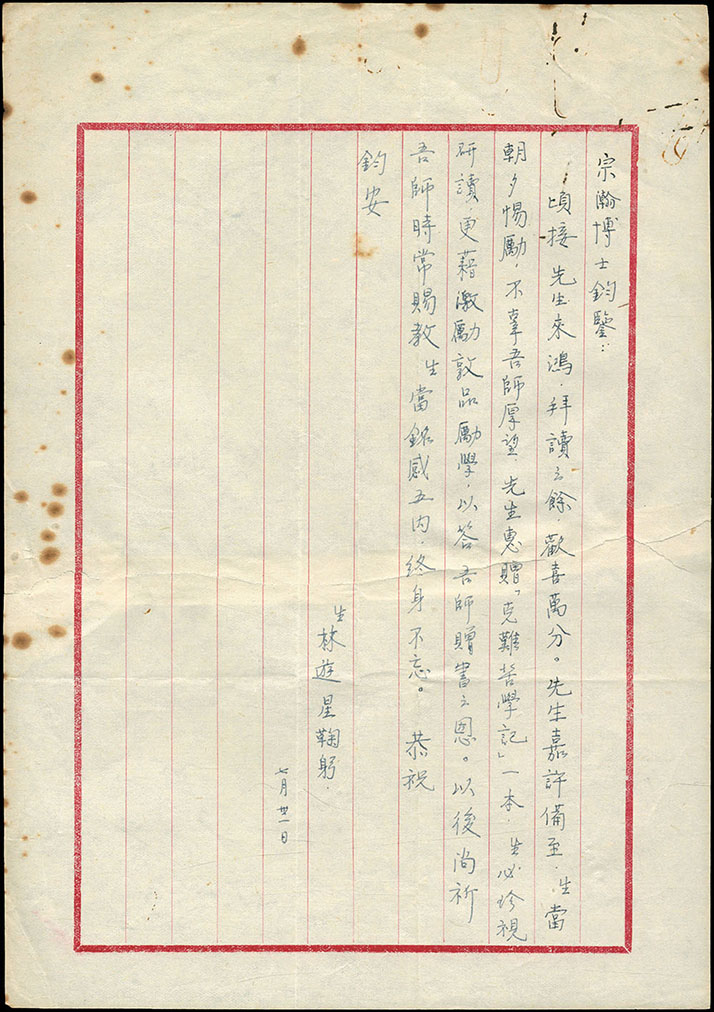 宗瀚博士鈞鑒：
頃接 先生來鴻，拜讀之餘，歡喜萬分。先生嘉許備至，生當
朝夕惕勵，不辜吾師厚望，先生惠贈「克難苦學記」一本，生必珍視
研讀，更藉激勵敦品勵學，以答吾師贈書之恩。以後尚祈
吾師時常賜教，生當銘感五內，終身不忘。 恭祝
鈞安
生林遊星鞠躬．
七月卅一日